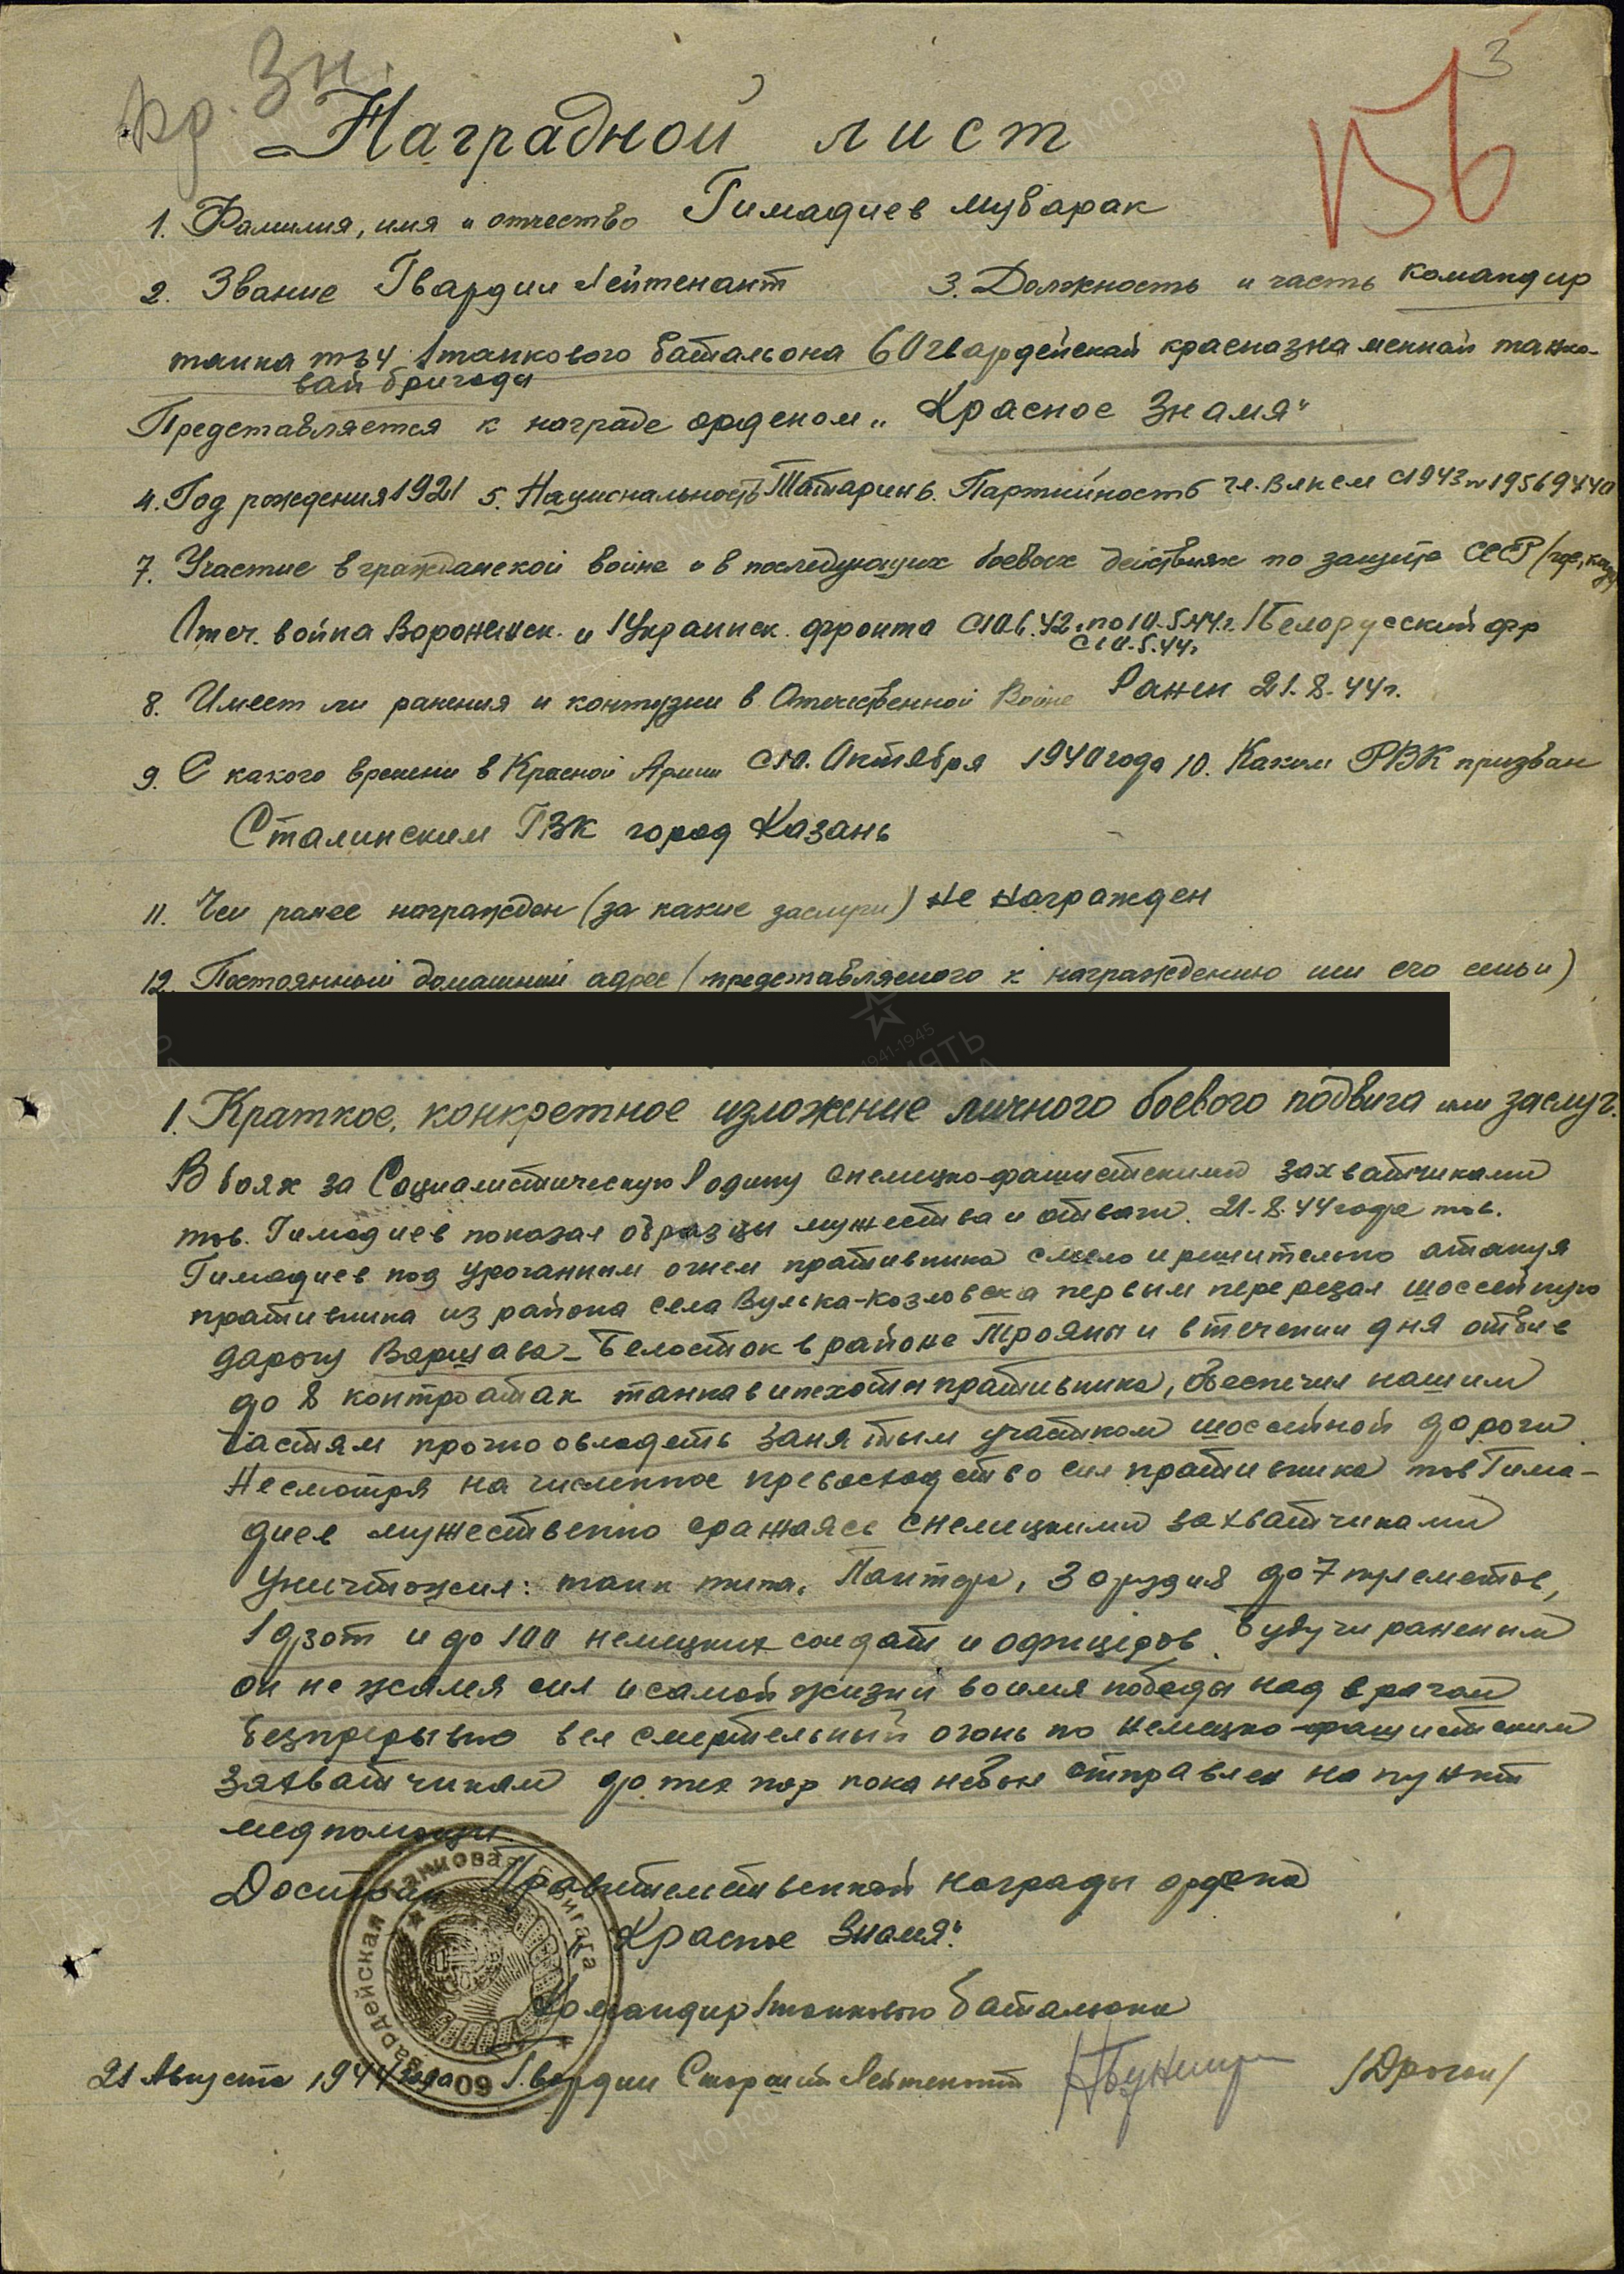 Кр. Зн.
3
Наградной лист
1. Фамилия, имя и отчество Гимадиев Мубарак
2. Звание Гвардии Лейтенант 3. Должность и часть командир
танка т34 1 танкового батальона 60 гвардейской краснознаменной танко-
вой бригады
Представляется к награде орденом „Красное Знамя"
4. Год рождения 1921 5. Национальность Татарин 6. Партийность чл. ВЛКСМ с 1943 № 19569440
7. Участие в гражданской войне и в последующих боевых действиях по защите СССР (где, когда
Отеч. война Воронежск. и 1 Украинск. фронта с 10.6.42. по 10.5.44г. 1 Белорусский фр
с 10.5.44г.
8. Имеет ли ранения и контузии в Отечественной Войне Ранен 21.8.44г.
9. С какого времени в Красной Армии с 10. Октября 1940 года 10. Каким РВК призван
Сталинским ГВК город Казань
11. Чем ранее награжден (за какие заслуги) Не награжден
12. Постоянный домашний адрес (представляемого к награждению или его семьи)
1. Краткое, конкретное изложение личного боевого подвига или заслуг.
В боях за Социалистическую Родину с немецко-фашистскими захватчиками
тов. Гимадиев показал образцы мужества и отваги. 21.8.44 года тов.
Гимадиев под ураганным огнем противника смело и решительно атакуя
противника из района села Вулька-Козловска первым перерезал шоссейную
дорогу Варшава-Белосток в районе Трояны и в течении дня отбив
до 8 контратак танков и пехоты противника, обеспечил нашим
частям прочно овладеть занятым участком шоссейной дороги.
Несмотря на численное превосходство сил противника тов Гима-
диев мужественно сражаясь с немецкими захватчиками
уничтожил: танк типа „Пантера, 3 орудия до 7 пулеметов,
1 дзот и до 100 немецких солдат и офицеров. Будучи раненым
он не жалея сил и самой жизни во имя победы над врагом
безпрерывно вел смертельный огонь по немецко-фашистским
захватчикам до тех пор пока не был отправлен на пункт
медпомощи.
Достоин Правительственной награды ордена
„Красное Знамя".
Командир 1 танкового батальона
21 Августа 1944 года Гвардии Старший Лейтенант /Дроган/
60 гвардейская танковая бригада